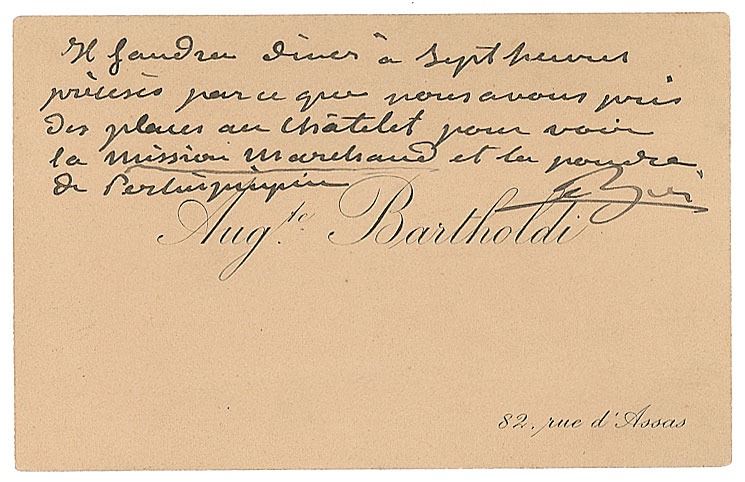 Il faudra diner à Sept heures
précises parce que nous avons pris
des places au Châtelet pour voir
la Mission Marchand et la poudre
de Perlinpinpin
Aug.te Bartholdi
82, rue d'Assas